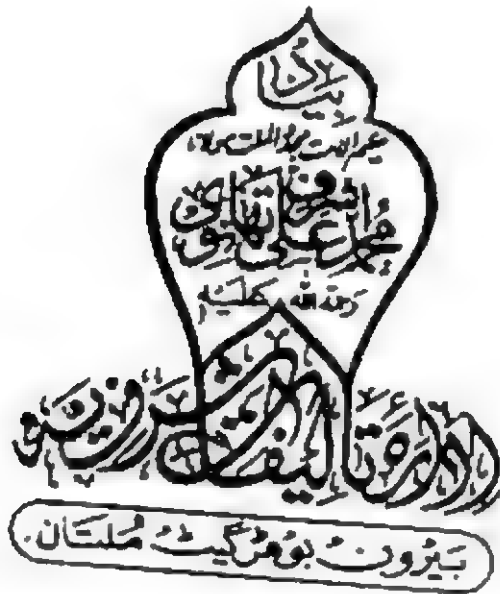 بیاد
حکیم الامت مجدد الملت مولانا
محمد اشرف علی تھانوی
رحمۃ اللہ علیہ
ادارہ تالیفات اشرفیہ
بیرون بوہڑ گیٹ ملتان